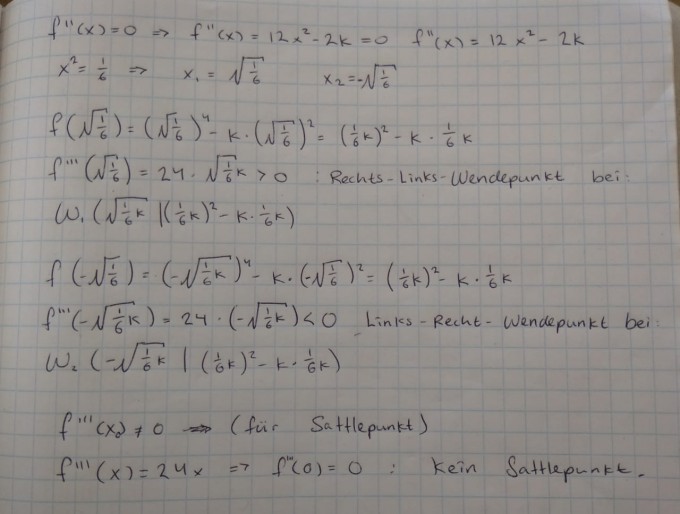 f''(x)=0 => f''(x) = 12x²-2k = 0 f''(x) = 12x² - 2k
x² = 1/6 => x₁ = √(1/6) x₂ = -√(1/6)
f(√(1/6)) = (√(1/6))⁴ - k · (√(1/6))² = (1/6 k)² - k · 1/6 k
f'''(√(1/6)) = 24 · √(1/6 k) > 0 : Rechts-Links-Wendepunkt bei:
W₁ (√(1/6 k) | (1/6 k)² - k · 1/6 k)
f(-√(1/6)) = (-√(1/6 k))⁴ - k · (-√(1/6))² = (1/6 k)² - k · 1/6 k
f'''(-√(1/6 k)) = 24 · (-√(1/6 k)) < 0 Links-Recht-Wendepunkt bei:
W₂ (-√(1/6 k) | (1/6 k)² - k · 1/6 k)
f'''(x₀) ≠ 0 => (für Sattlepunkt)
f'''(x) = 24x => f'''(0) = 0 : Kein Sattlepunkt.